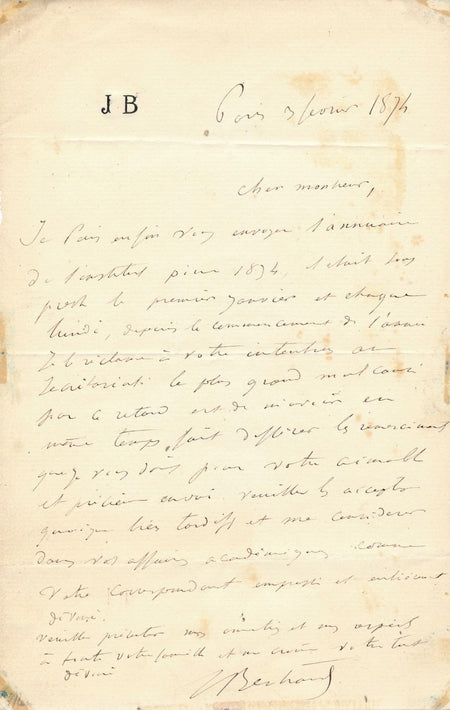 J B
Paris 3 février 1874
cher monsieur,
Je puis enfin vous envoyer l'annuaire
de l'institut pour 1874, il était
prest le premier janvier et chaque
lundi, depuis le commencement de l'année
je le réclame à votre intention au
secrétariat le plus grand
par ce retard est de m'avoir en
même temps fait différer les remerciements
que je vous dois pour votre aimable
et précieux envoi. veuillez les accepter
quoique bien tardifs et me considérer
dans vos affaires académiques comme
votre correspondant empressé et entièrement
dévoué.
veuillez présenter mes amitiés et mes respects
à toute votre famille et me croire votre tout
dévoué
J Bertrand